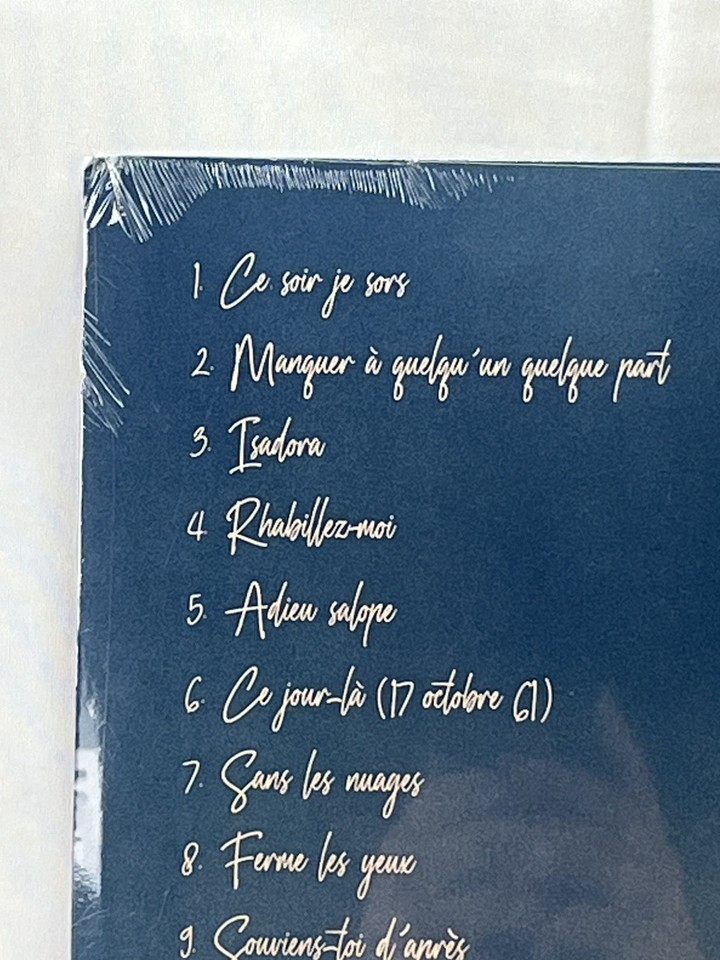 1. Ce soir je sors
2. Manquer à quelqu'un quelque part
3. Isadora
4. Rhabillez-moi
5. Adieu salope
6. Ce jour-là (17 octobre 61)
7. Sans les nuages
8. Ferme les yeux
9. Souviens-toi d'après